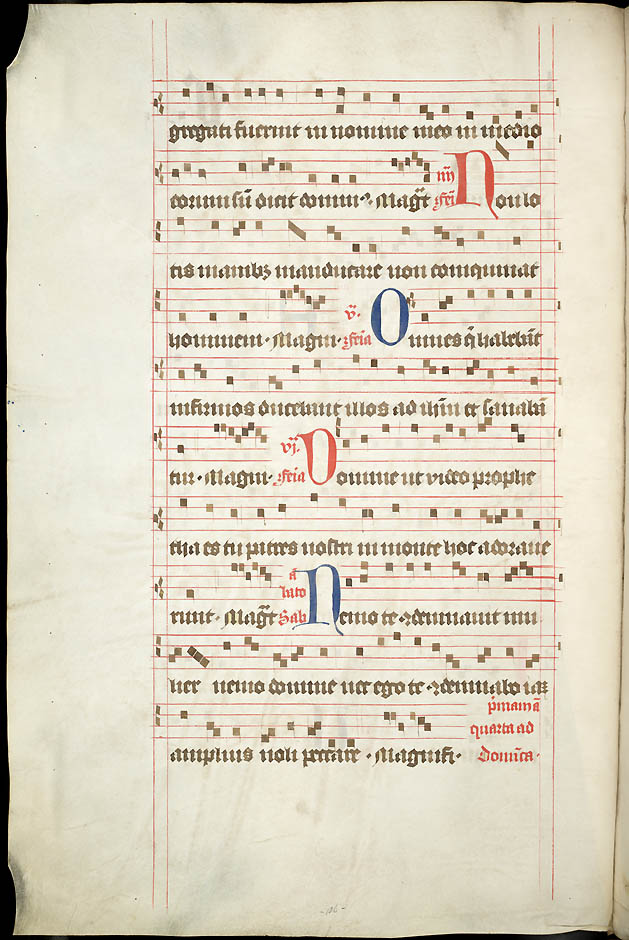 gregati fuerint in nomine meo in medio
eorum sū dicit domin⁹. Magāt iiij feīa Non lo
tis manibz manducare non coinquinat
hominem. Magni. v. feīa Omnes q̄ habebāt
infirmos ducebant illos ad ihm et sanabā
tur. Magni. vj. feīa Domine ut video prophe
tha es tu patres nostri in monte hoc adorave
runt. Magāt Sabbato ā Nemo te 9dempnavit mu
lier nemo domine nec ego te 9dempnabo iaz
amplius noli peccare. Magnifi.
p̄ma in ā
quarta ad
Domīca.